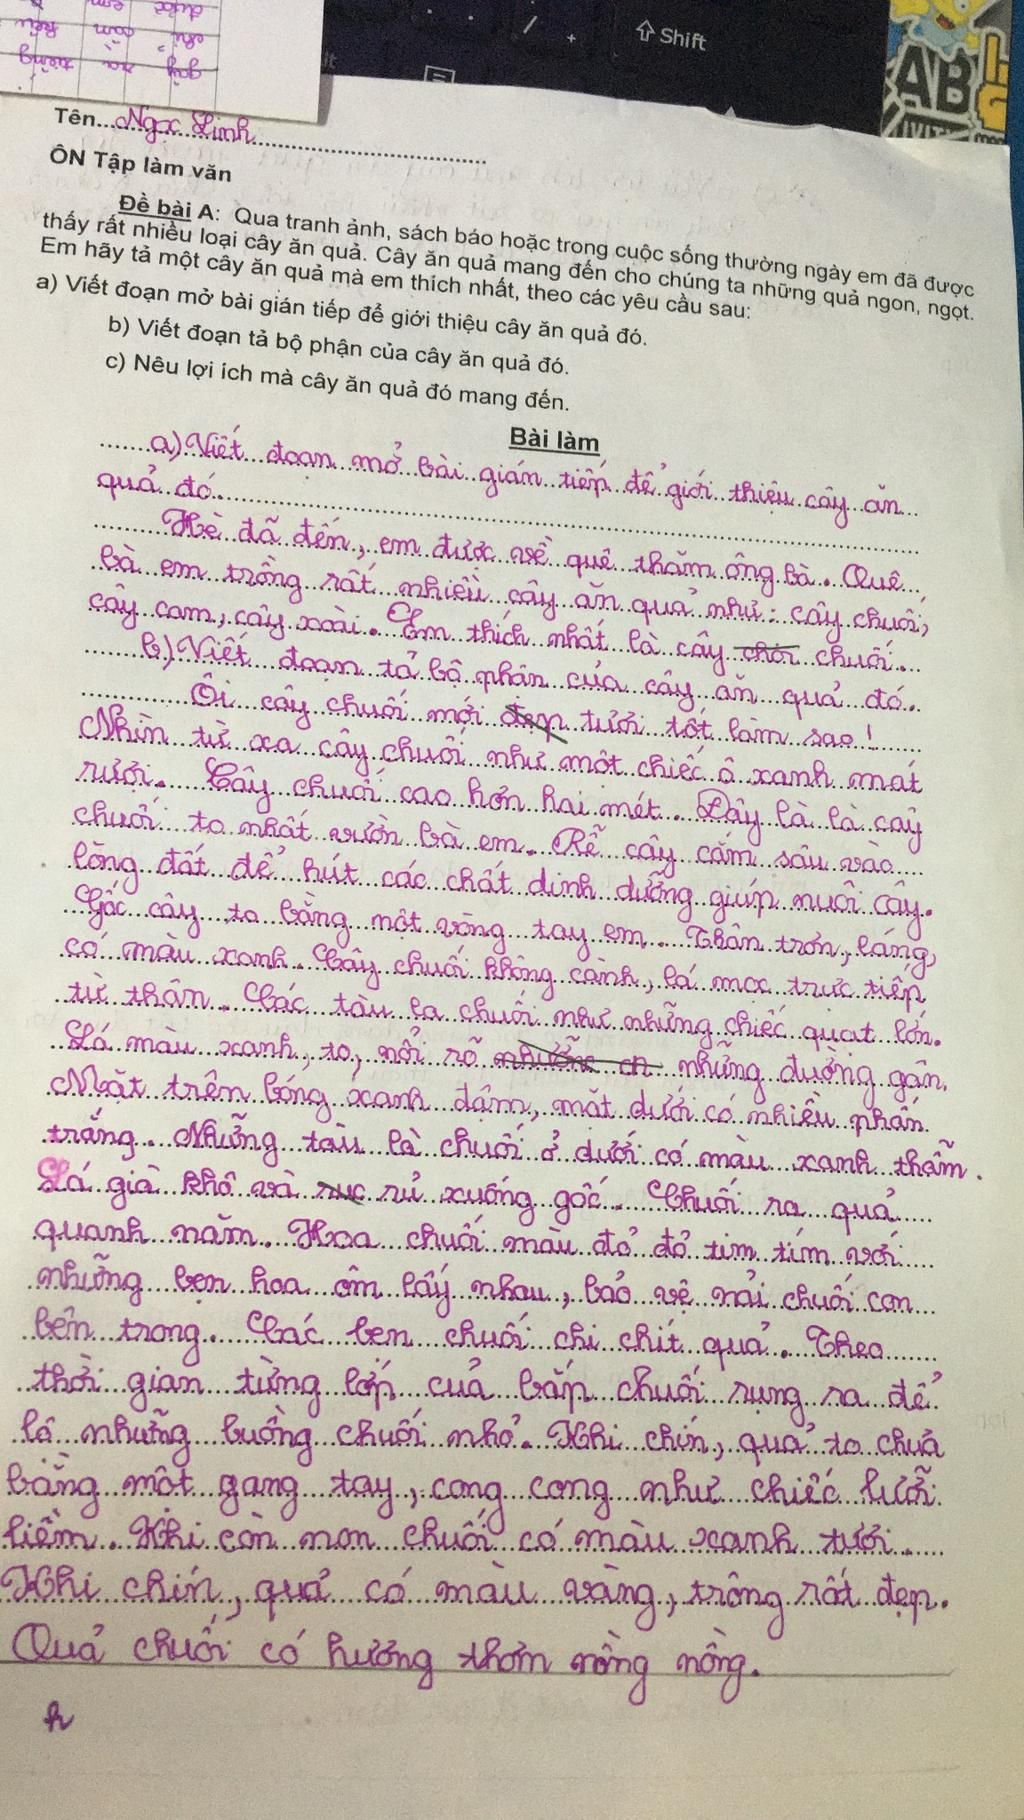 ⇧ Shift
AB
Tên...Ngọc Linh
ÔN Tập làm văn
Đề bài A: Qua tranh ảnh, sách báo hoặc trong cuộc sống thường ngày em đã được
thấy rất nhiều loại cây ăn quả. Cây ăn quả mang đến cho chúng ta những quả ngon, ngọt.
Em hãy tả một cây ăn quả mà em thích nhất, theo các yêu cầu sau:
a) Viết đoạn mở bài gián tiếp để giới thiệu cây ăn quả đó.
b) Viết đoạn tả bộ phận của cây ăn quả đó.
c) Nêu lợi ích mà cây ăn quả đó mang đến.
Bài làm
a) Viết đoạn mở bài gián tiếp để giới thiệu cây ăn
quả đó.
Hè đã đến, em được về quê thăm ông bà. Quê
bà em trồng rất nhiều cây ăn quả như: cây chuối,
cây cam, cây xoài. Em thích nhất là cây chuối.
b) Viết đoạn tả bộ phân của cây ăn quả đó.
Ôi cây chuối mới tươi tốt làm sao!
Nhìn từ xa cây chuối như một chiếc ô xanh mát
rượi. Cây chuối cao hơn hai mét. Đây là là cây
chuối to nhất vườn bà em. Rễ cây cắm sâu vào
lòng đất để hút các chất dinh dưỡng giúp nuôi cây.
Gốc cây to bằng một vòng tay em. Thân trơn, láng,
có màu xanh. Cây chuối không cành, lá mọc trực tiếp
từ thân. Các tàu la chuối như những chiếc quạt lớn.
Lá màu xanh, to, nổi rõ những đường gân.
Mặt trên bóng xanh đậm, mặt dưới có nhiều phấn
trắng. Những tàu là chuối ở dưới có màu xanh thẫm.
Lá già khô và rủ xuống gốc. Chuối ra quả
quanh năm. Hoa chuối màu đỏ đỏ tim tím với
những bẹn hoa ôm lấy nhau, bảo vệ nải chuối con
bên trong. Các ben chuối chi chít quả. Theo
thời gian từng lớp của bắp chuối rụng ra để
lộ những buồng chuối nhỏ. Khi chín, quả to chưa
bằng một gang tay, cong cong như chiếc lưỡi
liềm. Khi còn non chuối có màu xanh tươi.
Khi chín, quả có màu vàng, trông rất đẹp.
Quả chuối có hương thơm nồng nồng.